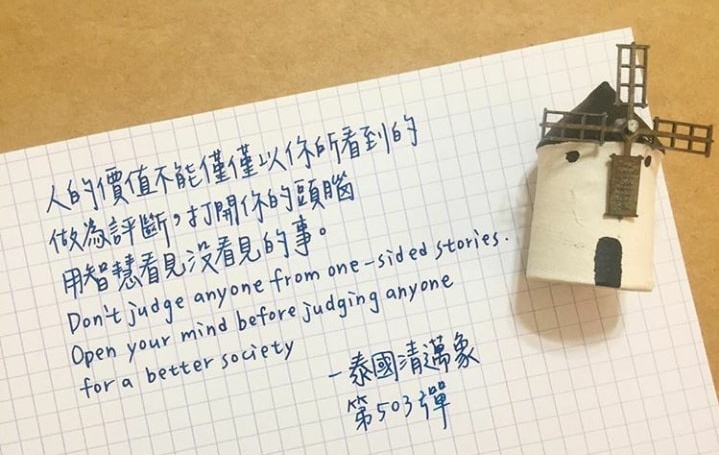 人的價值不能僅僅以你所看到的
做為評斷，打開你的頭腦
用智慧看見沒看見的事。
Don't judge anyone from one-sided stories.
Open your mind before judging anyone
for a better society
-泰國清邁象
第503彈